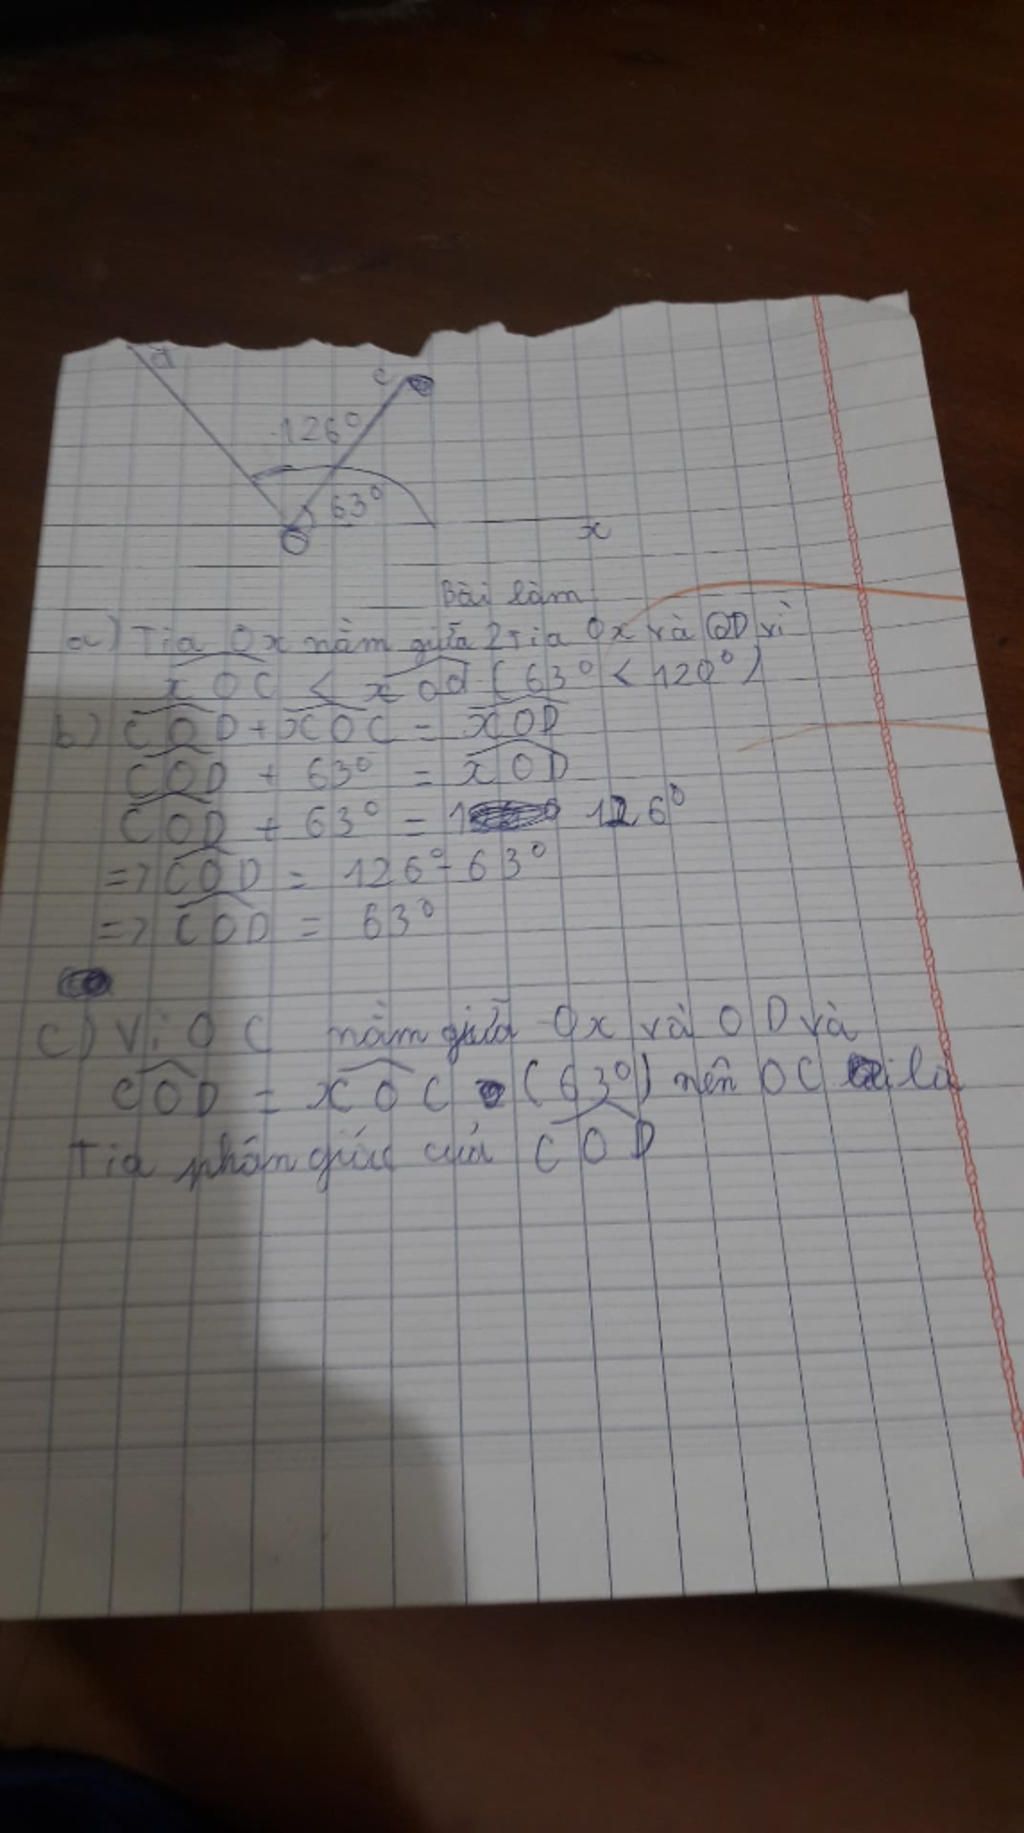 d
c
126°
63°
O
x
Bài làm
a) Tia Ox nằm giữa 2 Tia Ox và OD vì
xOC < xOd (63° < 120°)
b) COD + xOC = xOD
COD + 63° = xOD
COD + 63° = 1 126°
=> COD = 126° - 63°
=> COD = 63°
c) Vì OC nằm giữa Ox và OD và
COD = xOC (63°) nên OC là
Tia phân giác của COD